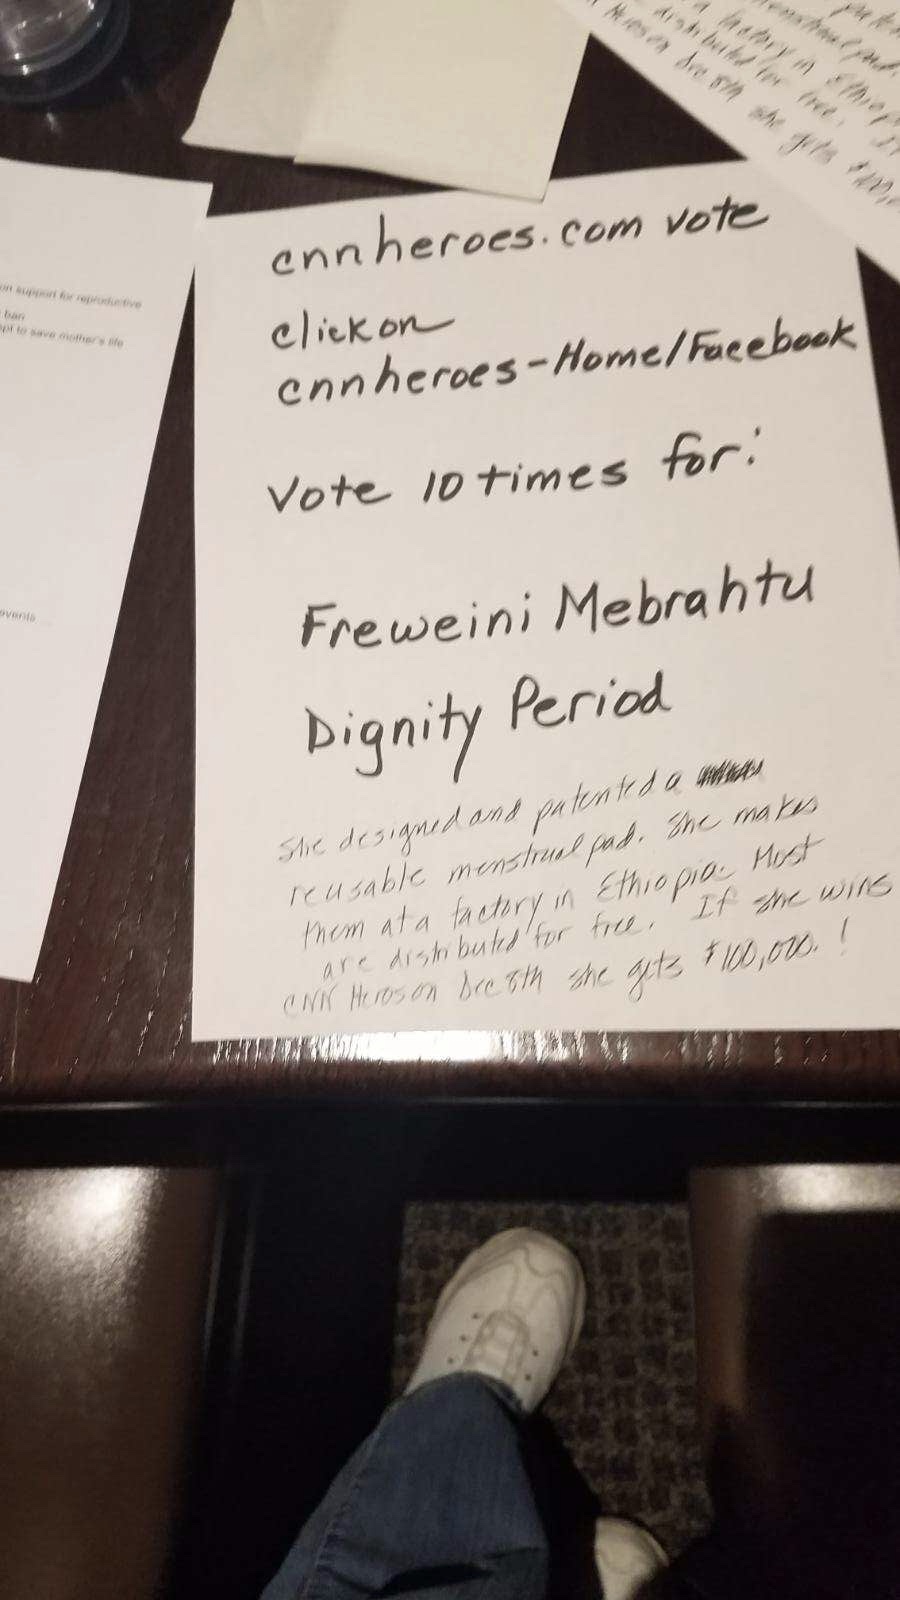 on support for reproductive
ban
to save mother's life
events
a factory in Ethiop
distributed for free. If
Heroes on Dec 8th she gets $100,0
cnnheroes.com vote
click on
cnnheroes-Home/Facebook
Vote 10 times for:
Freweini Mebrahtu
Dignity Period
She designed and patented a
reusable menstrual pad. She makes
them at a factory in Ethiopia. Most
are distributed for free. If she wins
CNN Heros on Dec 8th she gets $100,000. !